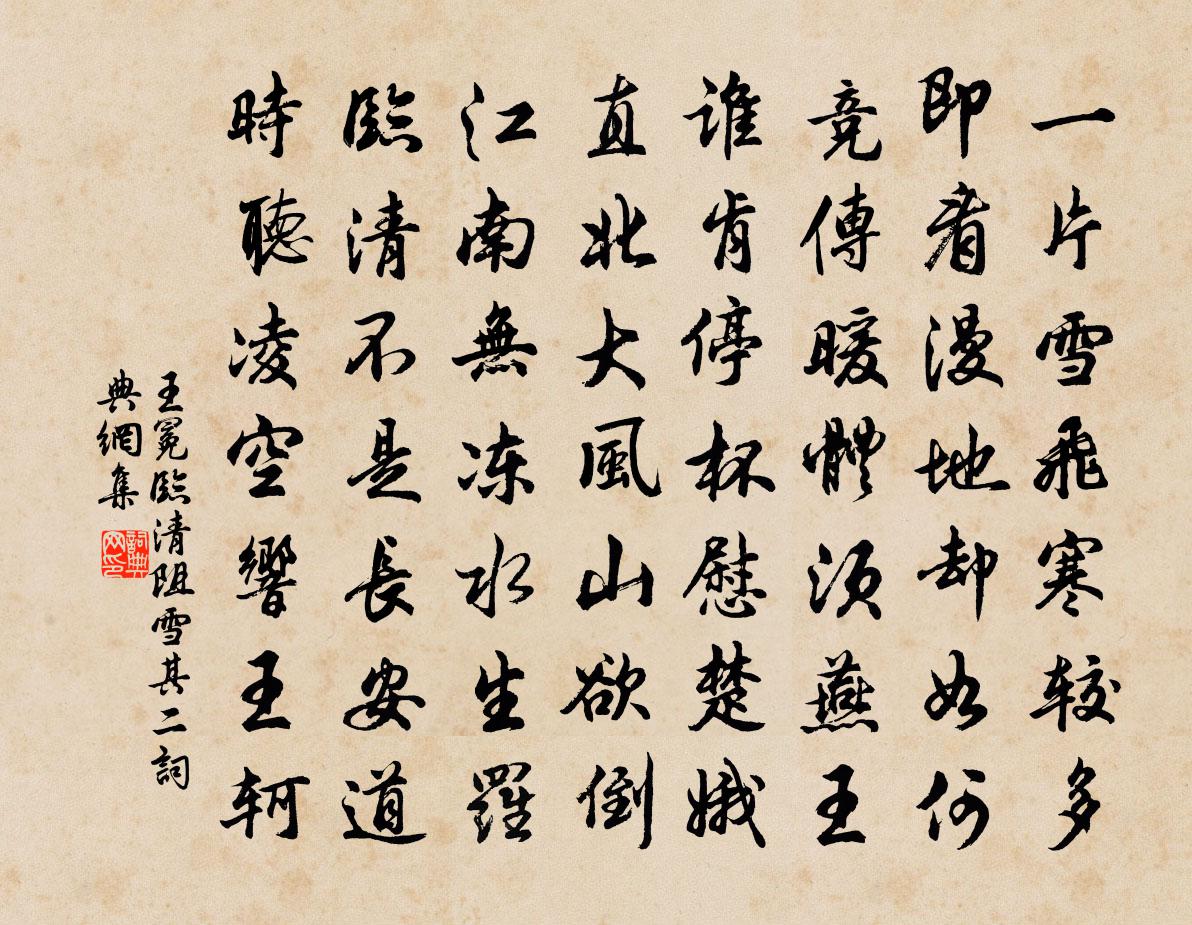 一片雪飛寒较多
即看漫地却如何
竞傳暖體須燕王
谁肯停杯慰楚娥
直北大風山欲倒
江南無冻水生羅
臨清不是長安道
時聽凌空響玉轲
王冕臨清阻雪其二詞
典網集
詞典网印